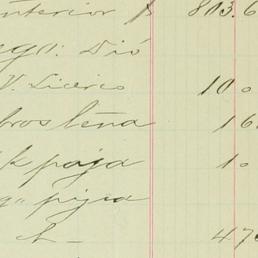 nterior $ 803.6
ego: Dió
V. Liceres 10 0
bros leña 16
k paja 1 0
g" pipa
h 476